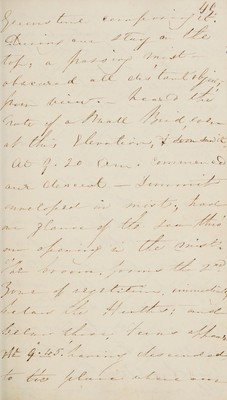 49
composing it.
During our stay on the
top, a passing mist
obscured all distant objects
from view — heard the
note of a small bird even
at this Elevation,
At 9.20 a.m. commenced
our descent — Summit
enveloped in mist; had
a glance of the sea thro'
an opening in the mist.
The broom, forms the 2nd
Zone of vegetation, immediately
below the Heaths; and
below these, ferns appear.
At 9.45 having descended
to the place where our